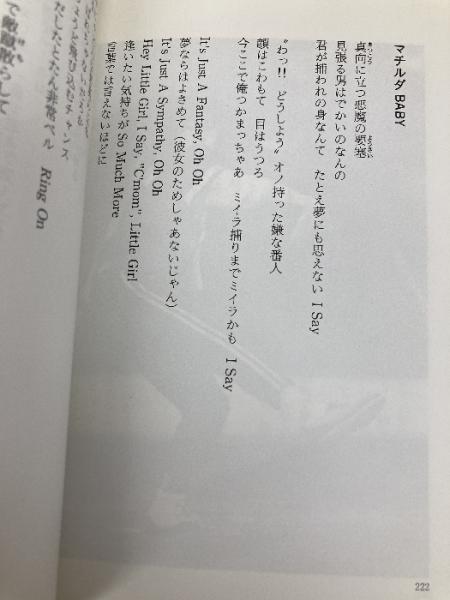 マチルダ BABY
真向に立つ悪魔の要塞
見張る男はでかいのなんの
君が捕われの身なんて たとえ夢にも思えない I Say
〝わっ!! どうしよう〟オノ持った嫌な番人
顔はこわもて 目はうつろ
今ここで俺つかまっちゃあ ミイラ捕りまでミイラかも I Say
It's Just A Fantasy, Oh Oh
夢ならば (彼女のためしゃあないじゃん)
It's Just A Sympathy, Oh Oh
Hey Little Girl, I Say, "C'mom", Little Girl
逢いたい気持ちが So Much More
言葉では言えないほどに
飛び込むチャンス
だしたとたん非常ベル Ring On
で敵蹴散らして
222